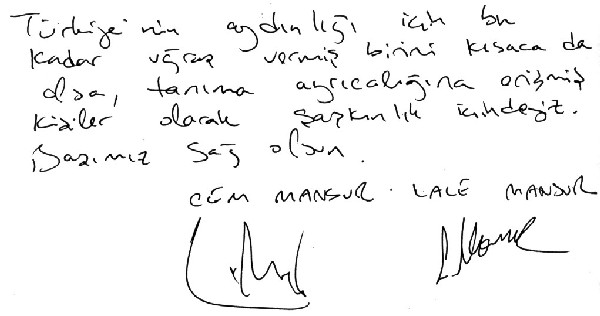 Türkiye'nin aydınlığı için bu
kadar uğraş vermiş birini kısaca da
olsa, tanıma ayrıcalığına erişmiş
kişiler olarak şaşkınlık içindeyiz.
Başımız sağ olsun.
CEM MANSUR · LALE MANSUR